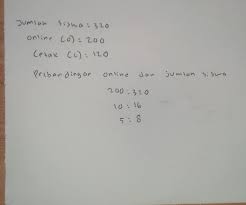 Jumlah siswa = 320
online (o) = 200
Cetak (c) = 120
Perbandingan online dan jumlah siswa
200 : 320
10 : 16
5 : 8